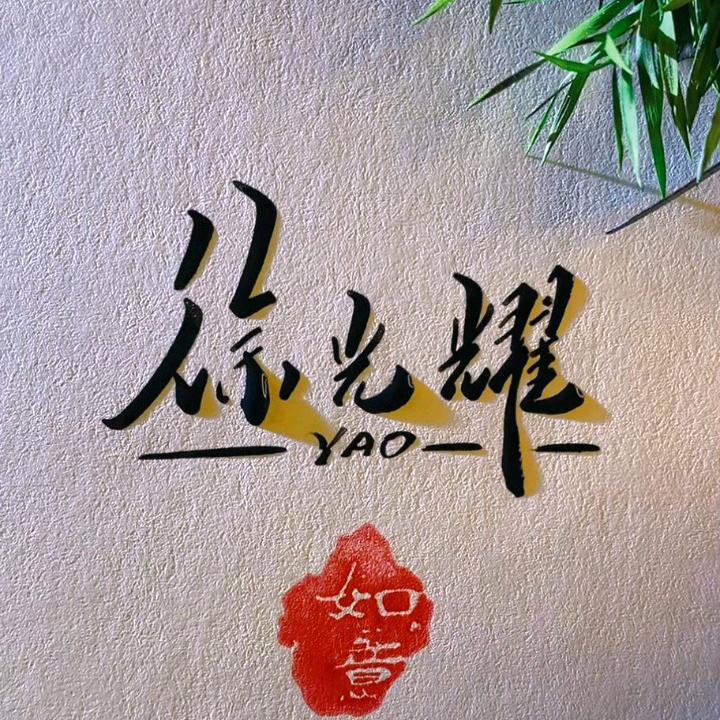 徐光耀
YAO
如
意